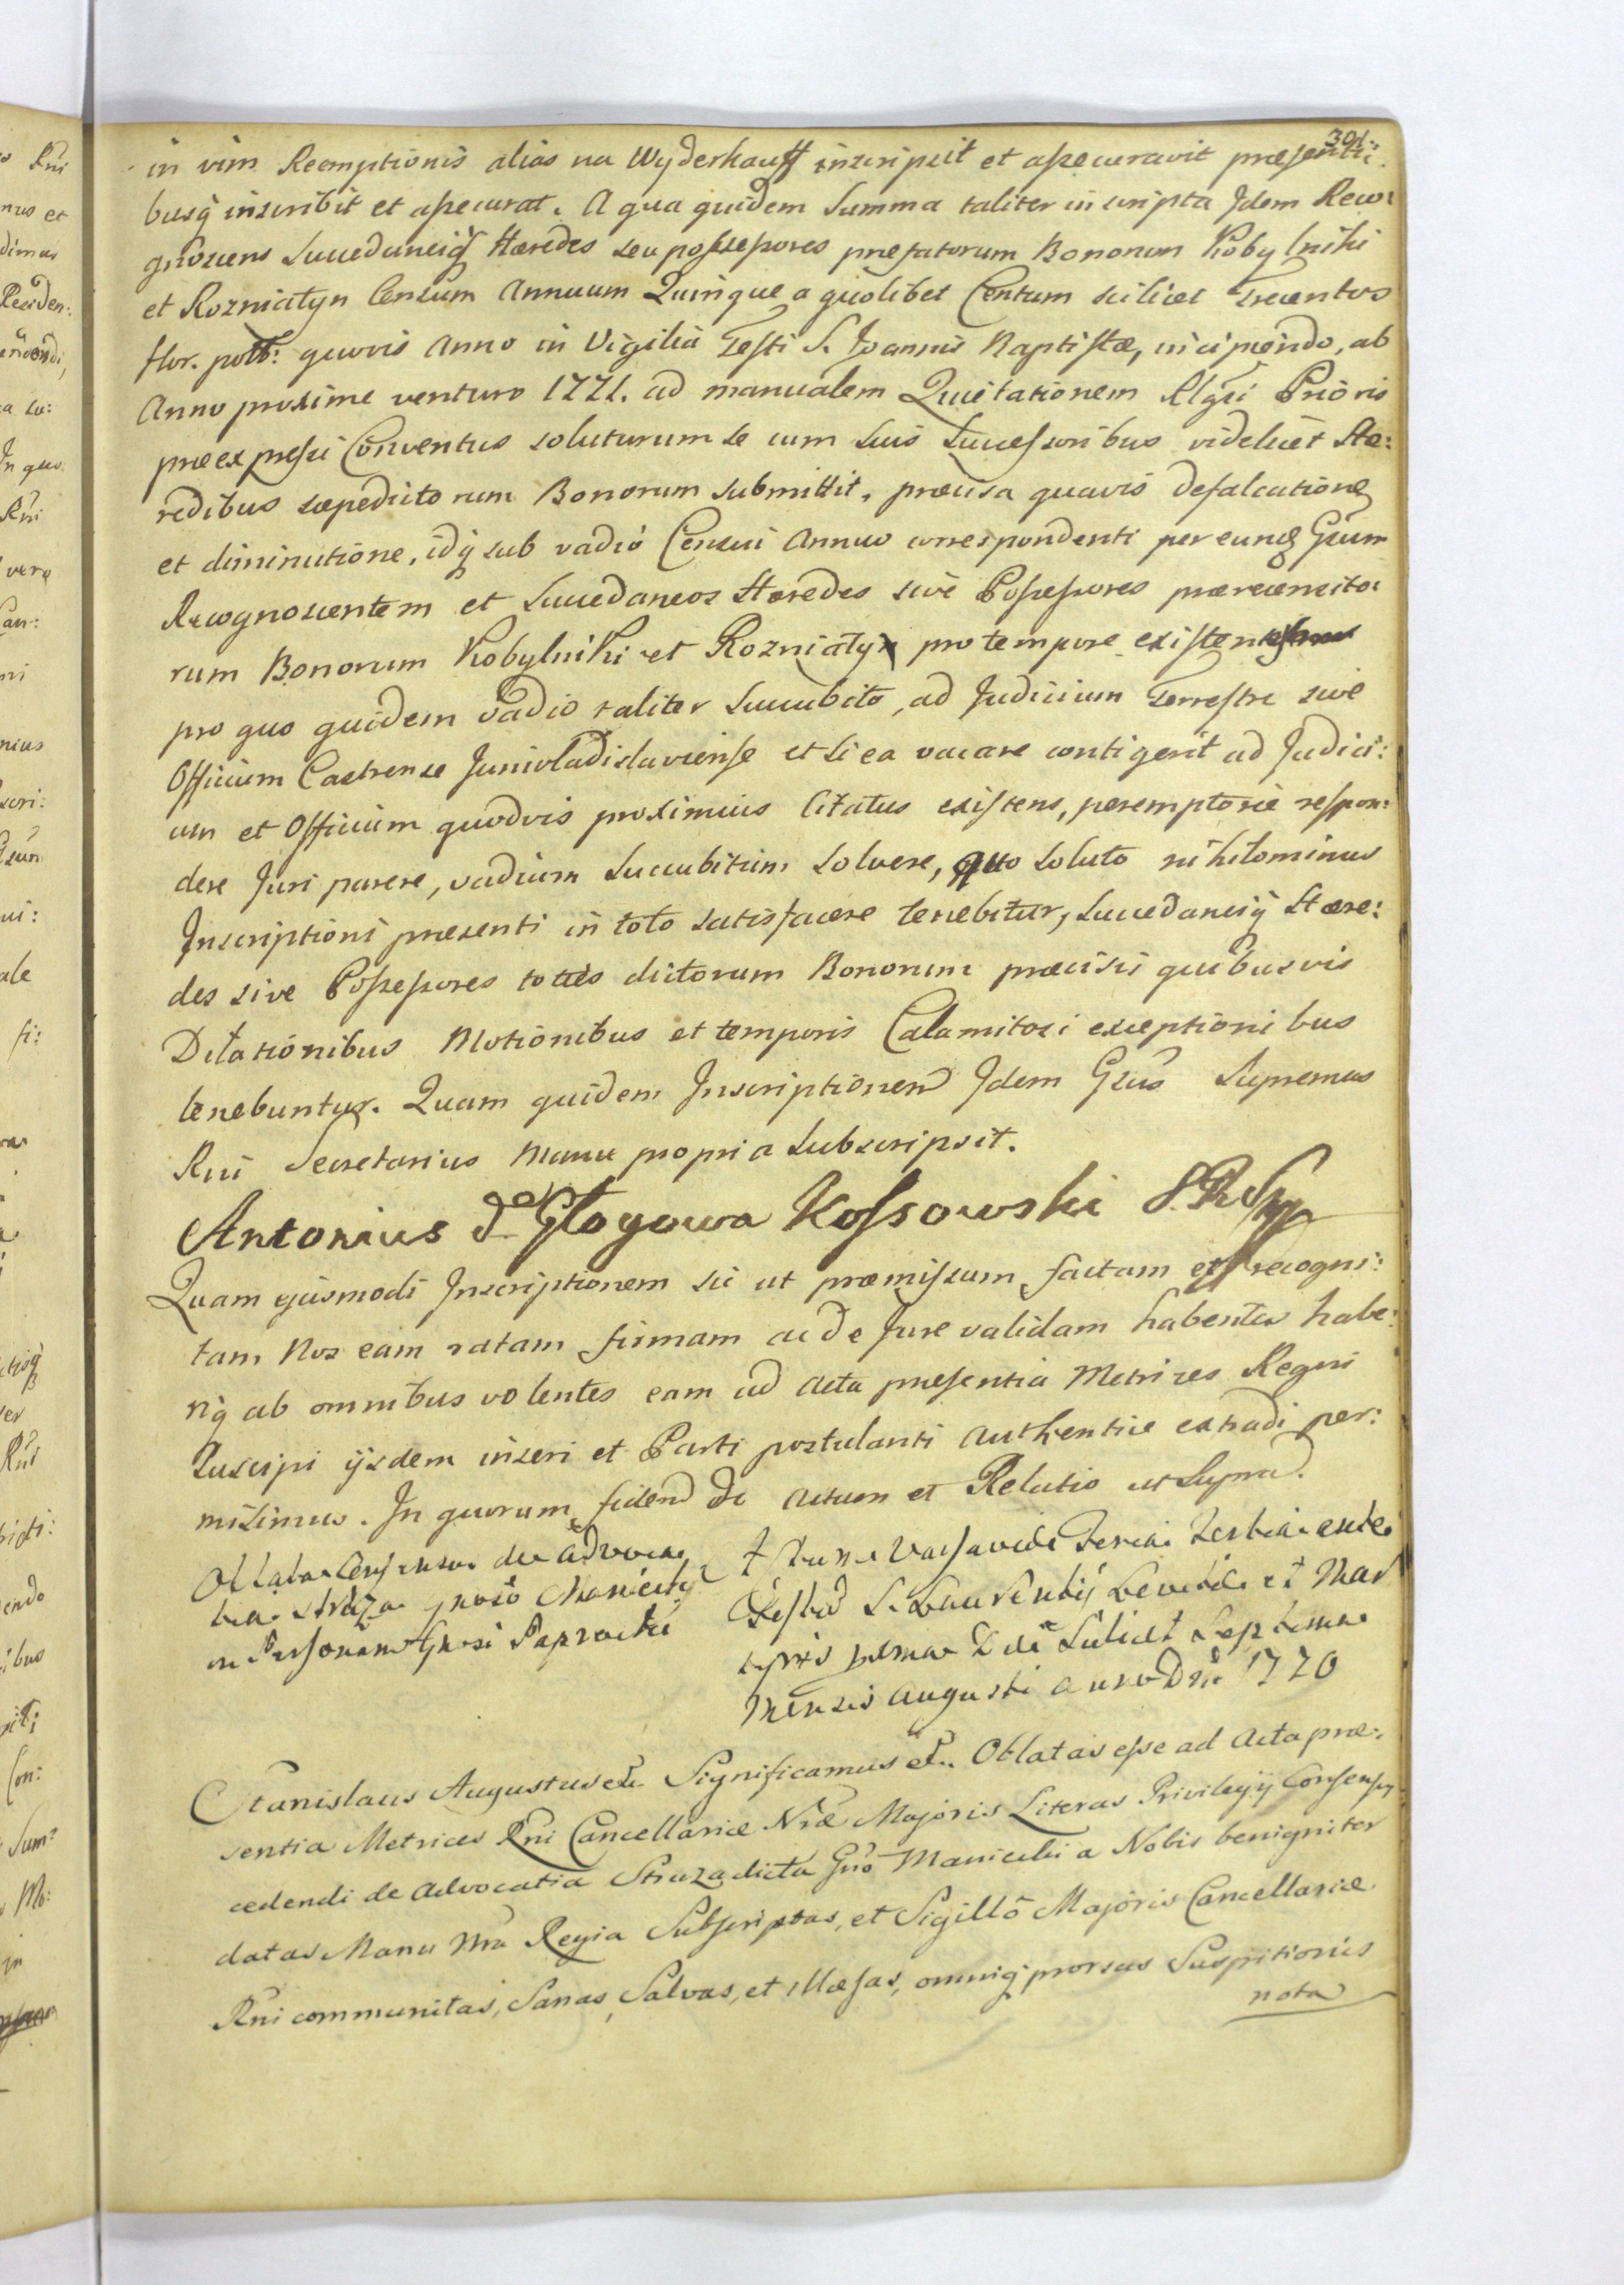 301.
in vim Reemptionis alias na Wyderkauff inscripsit et assecuravit præsenti:
busq inscribit et assecurat. A qua quidem Summa taliter inscripta Idem Reco:
gnoscens Succedaneiq Hæredes seu possessores præfatorum Bonorum Kobylniki
et Rozniatyn Censum Annuum Quinque a quolibet Centum scilicet Trecentos
flor. poll: quovis Anno in Vigilia Festi S. Joannis Baptistæ, incipiendo, ab
Anno proxime venturo 1771. ad manualem Quietationem Rlgsi Prioris
præexpressi Conventus soluturum se cum suis Successoribus videlicet Hæ:
redibus sæpedictorum Bonorum submittit, præcisa quavis defalcatione
et diminutione, idq sub vadio Censui Annuo correspondenti per eund Gsum
Recognoscentem et Succedaneos Hæredes sive Possessores prærecensito:
rum Bonorum Kobylniki et Rozniatyn pro tempore existen
pro quo quidem vadio taliter succubito, ad Judicium Terrestre sive
Officium Castrense Junivladislaviense et si ea vacare contigerit ad Judici:
um et Officium quodvis proximius Citatus existens, peremptorie respon:
dere Juri parere, vadium succubitum solvere, quo soluto nihilominus
Inscriptioni præsenti in toto satisfacere tenebitur, Succedaneiq Hære:
des sive Possessores toties dictorum Bonorum præcisis quibusvis
Dilationibus Motionibus et temporis Calamitosi exceptionibus
tenebuntur. Quam quidem Inscriptionem Idem Gsus Supremus
Rni Secretarius Manu propria subscripsit.
Antonius de Głogowa Kossowski S.R.S mp
Quam ejusmodi Inscriptionem sic ut præmissum factam et recogni:
tam Nos eam ratam firmam ac de Jure validam habentes habe:
riq ab omnibus volentes eam ad Acta præsentia Metrices Regni
suscipi ijsdem inseri et Parti postulanti authentice extradi per:
misimus. In quorum fidem &c Actum et Relatio ut supra.
Oblata Consensus de Advoca
tia Straza gnoso Manicki
in Personam Gnosi Paprocki
Actum Varsaviæ Feria Tertia ante
Festum S. Laurentij Levitæ et Mar
tyris prima Die scilicet Septima
Mensis Augusti anno Dni 1770
Stanislaus Augustus etc. Significamus etc. Oblatas esse ad Acta præ:
sentia Metrices Rni Cancellariæ Nræ Majoris Literas Privilegij Consensus
cedendi de Advocatia Straza dicta Gno Manicki a Nobis benigniter
datas Manu Nra Regia Subscriptas, et Sigillo Majoris Cancellariæ
Rni communitas, Sanas, Salvas, et illæsas, omniq prorsus Suspitionis
nota